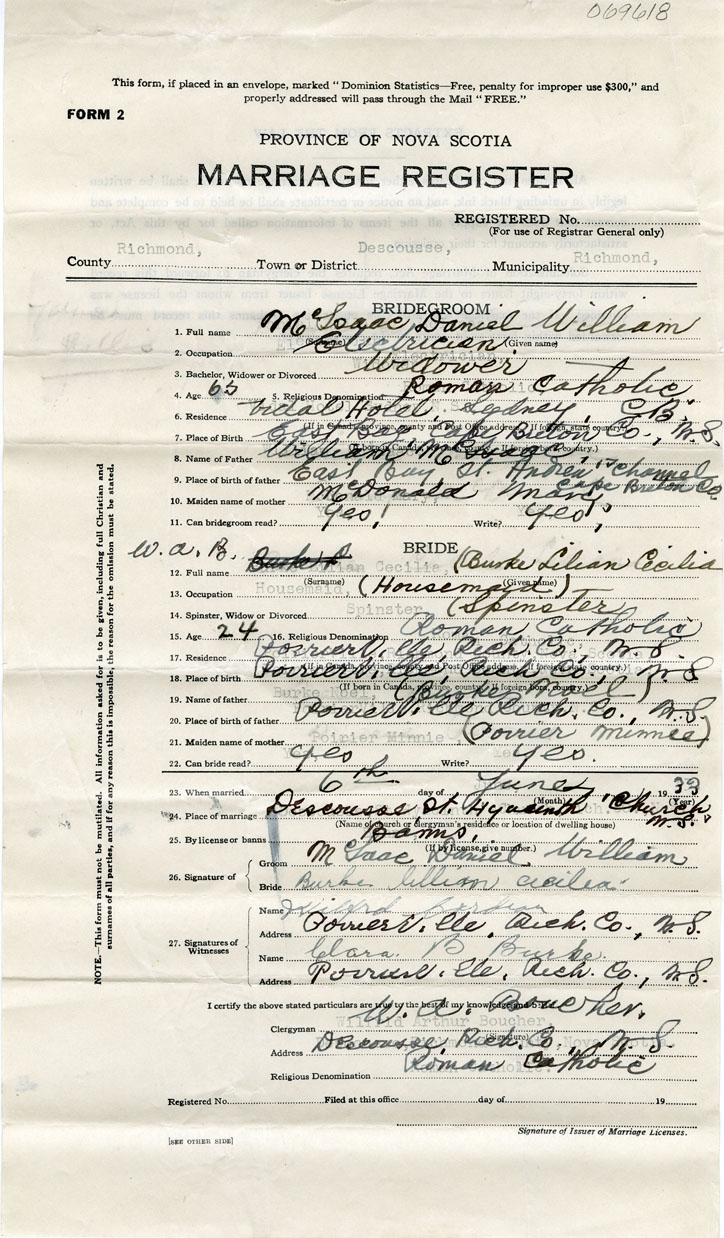 069618
This form, if placed in an envelope, marked “Dominion Statistics—Free, penalty for improper use $300,” and
properly addressed will pass through the Mail “FREE.”
FORM 2
PROVINCE OF NOVA SCOTIA
MARRIAGE REGISTER
REGISTERED No.
(For use of Registrar General only)
County Richmond, Town or District Descousse, Municipality Richmond,
BRIDEGROOM
1. Full name McIsaac Daniel William
(Surname) (Given name)
2. Occupation Electrician
3. Bachelor, Widower or Divorced Widower
4. Age 63 5. Religious Denomination Roman Catholic
6. Residence Vidal Hotel, Sydney, C.B.
(If in Canada, province, county and Post Office address, if foreign state country.)
7. Place of Birth East Bay, Cape Breton Co., N.S.
(If born in Canada, province, county, if foreign born, country.)
8. Name of Father William McIsaac
9. Place of birth of father East Bay St. Andrew's Channel Cape Breton Co
10. Maiden name of mother McDonald Mary
11. Can bridegroom read? Yes, Write? Yes,
BRIDE
W. A. B. Burke (Burke Lilian Cecilia
12. Full name Lilian Cecilia,
(Surname) (Given name)
13. Occupation Housemaid, (Housemaid)
14. Spinster, Widow or Divorced Spinster (Spinster
15. Age 24 16. Religious Denomination Roman Catholic
17. Residence Poirierville, Rich. Co., N.S.
(If in Canada, province, county and Post Office address, if foreign state country.)
18. Place of birth Poirierville, Rich. Co., N.S
(If born in Canada, province, county, if foreign born, country.)
19. Name of father Burke Noel, (Burke Noel)
20. Place of birth of father Poirierville Rich. Co., N.S.
21. Maiden name of mother Poirier Minnie, (Poirier Minnie)
22. Can bride read? Yes Write? Yes.
23. When married 6th day of June 1933
(Month) (Year)
24. Place of marriage Descousse St. Hyacinth Church N.S.
(Name of church or clergyman's residence or location of dwelling house)
25. By license or banns Banns,
(If by license, give number.)
26. Signature of
Groom McIsaac Daniel William
Bride Burke Lilliam Cecilia
27. Signatures of Witnesses
Name
Address Poirierville, Rich. Co., N.S.
Name Clara B Burke
Address Poirierville, Rich. Co., N.S.
I certify the above stated particulars are true to the best of my knowledge and belief.
Clergyman W. A. Boucher.
Wilfrid Arthur Boucher
(Signature)
Address Descousse, Rich. Co., N.S.
Religious Denomination Roman Catholic
Registered No. Filed at this office day of 19
Signature of Issuer of Marriage Licenses.
[SEE OTHER SIDE]
NOTE.—This form must not be mutilated. All information asked for is to be given, including full Christian and
surnames of all parties, and if for any reason this is impossible, the reason for the omission must be stated.